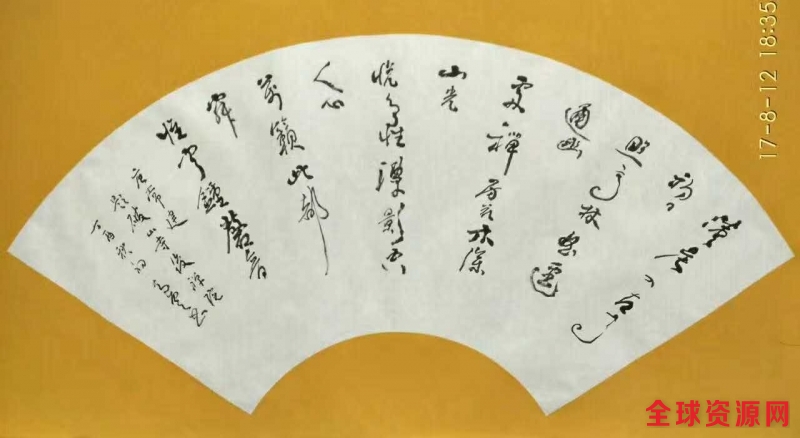 清晨入古寺
初日
照高林逕
通幽
處禪房花木深
山光
悦鸟性潭影空
人心
萬籟此都
寂
惟聞鐘磬音
唐常建
题破山寺後禅院
丁酉秋初
17-8-12 18:35
全球资源网